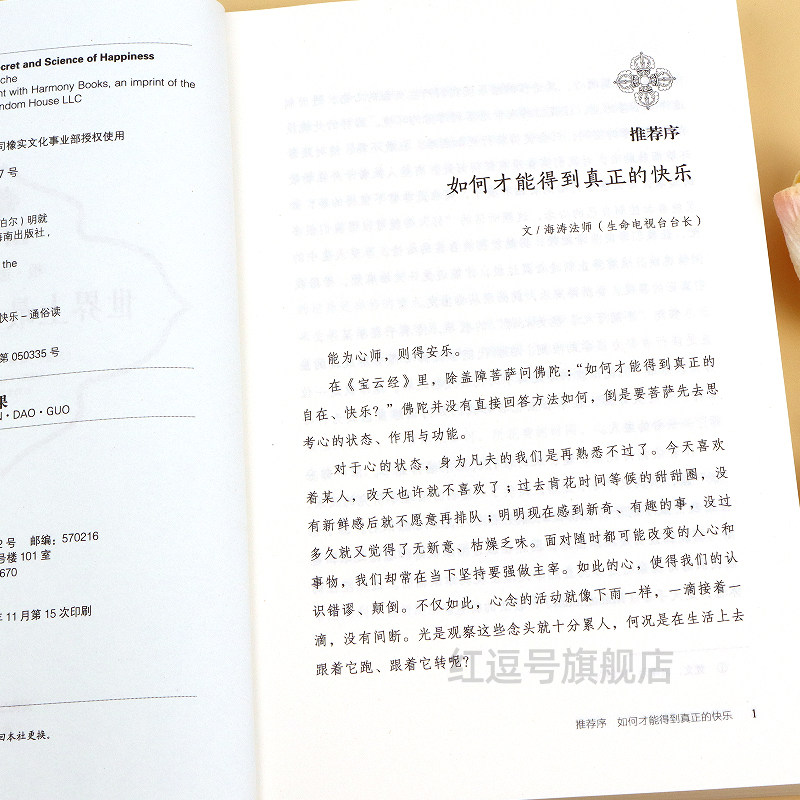 cret and Science of Happiness
che
nt with Harmony Books, an imprint of the
ndom House LLC
司橡实文化事业部授权使用
7 号
泊尔）明就
海南出版社，
the
快乐－通俗读
第 050335 号
果
·DAO·GUO
2 号 邮编：570216
号楼 101 室
670
年 11 月第 15 次印刷
回本社更换。
推荐序
如何才能得到真正的快乐
文/海涛法师（生命电视台台长）
能为心师，则得安乐。
在《宝云经》里，除盖障菩萨问佛陀：“如何才能得到真正的
自在、快乐？”佛陀并没有直接回答方法如何，倒是要菩萨先去思
考心的状态、作用与功能。
对于心的状态，身为凡夫的我们是再熟悉不过了。今天喜欢
着某人，改天也许就不喜欢了；过去肯花时间等候的甜甜圈，没
有新鲜感后就不愿意再排队；明明现在感到新奇、有趣的事，没过
多久就又觉得了无新意、枯燥乏味。面对随时都可能改变的人心和
事物，我们却常在当下坚持要强做主宰。如此的心，使得我们的认
识错谬、颠倒。不仅如此，心念的活动就像下雨一样，一滴接着一
滴，没有间断。光是观察这些念头就十分累人，何况是在生活上去
跟着它跑、跟着它转呢？
红逗号旗舰店
推荐序 如何才能得到真正的快乐 1